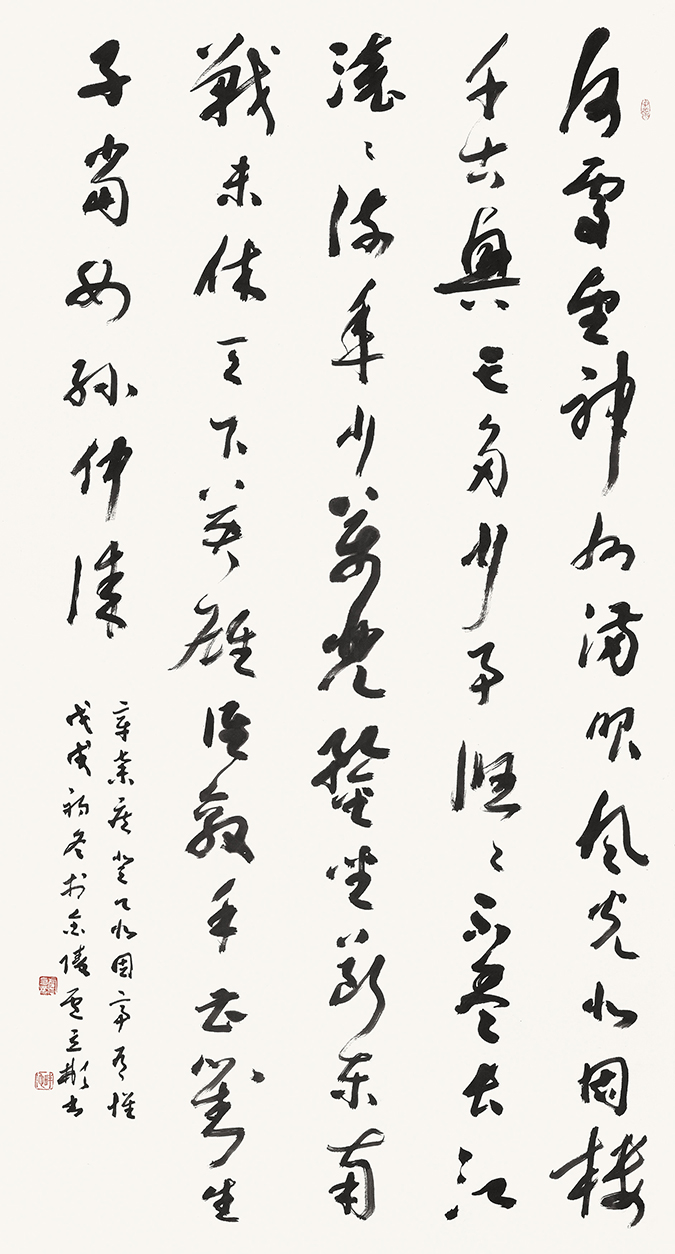 何處望神州滿眼風光北固樓
千古興亡多少事悠〻不盡長江
滾〻流年少萬兜鍪坐斷東南
戰未休天下英雄誰敵手曹劉生
子當如孫仲謀
辛棄疾登北固亭有懷
戊戌初冬於金陵書